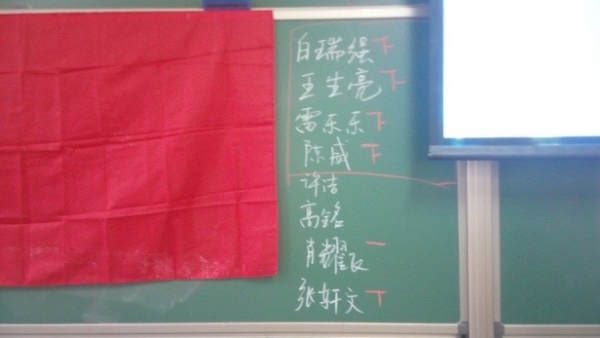 白瑞强 下
王生亮 下
雷乐乐 下
陈威 下
许浩
高铭
肖耀辰 一
张轩文 丅